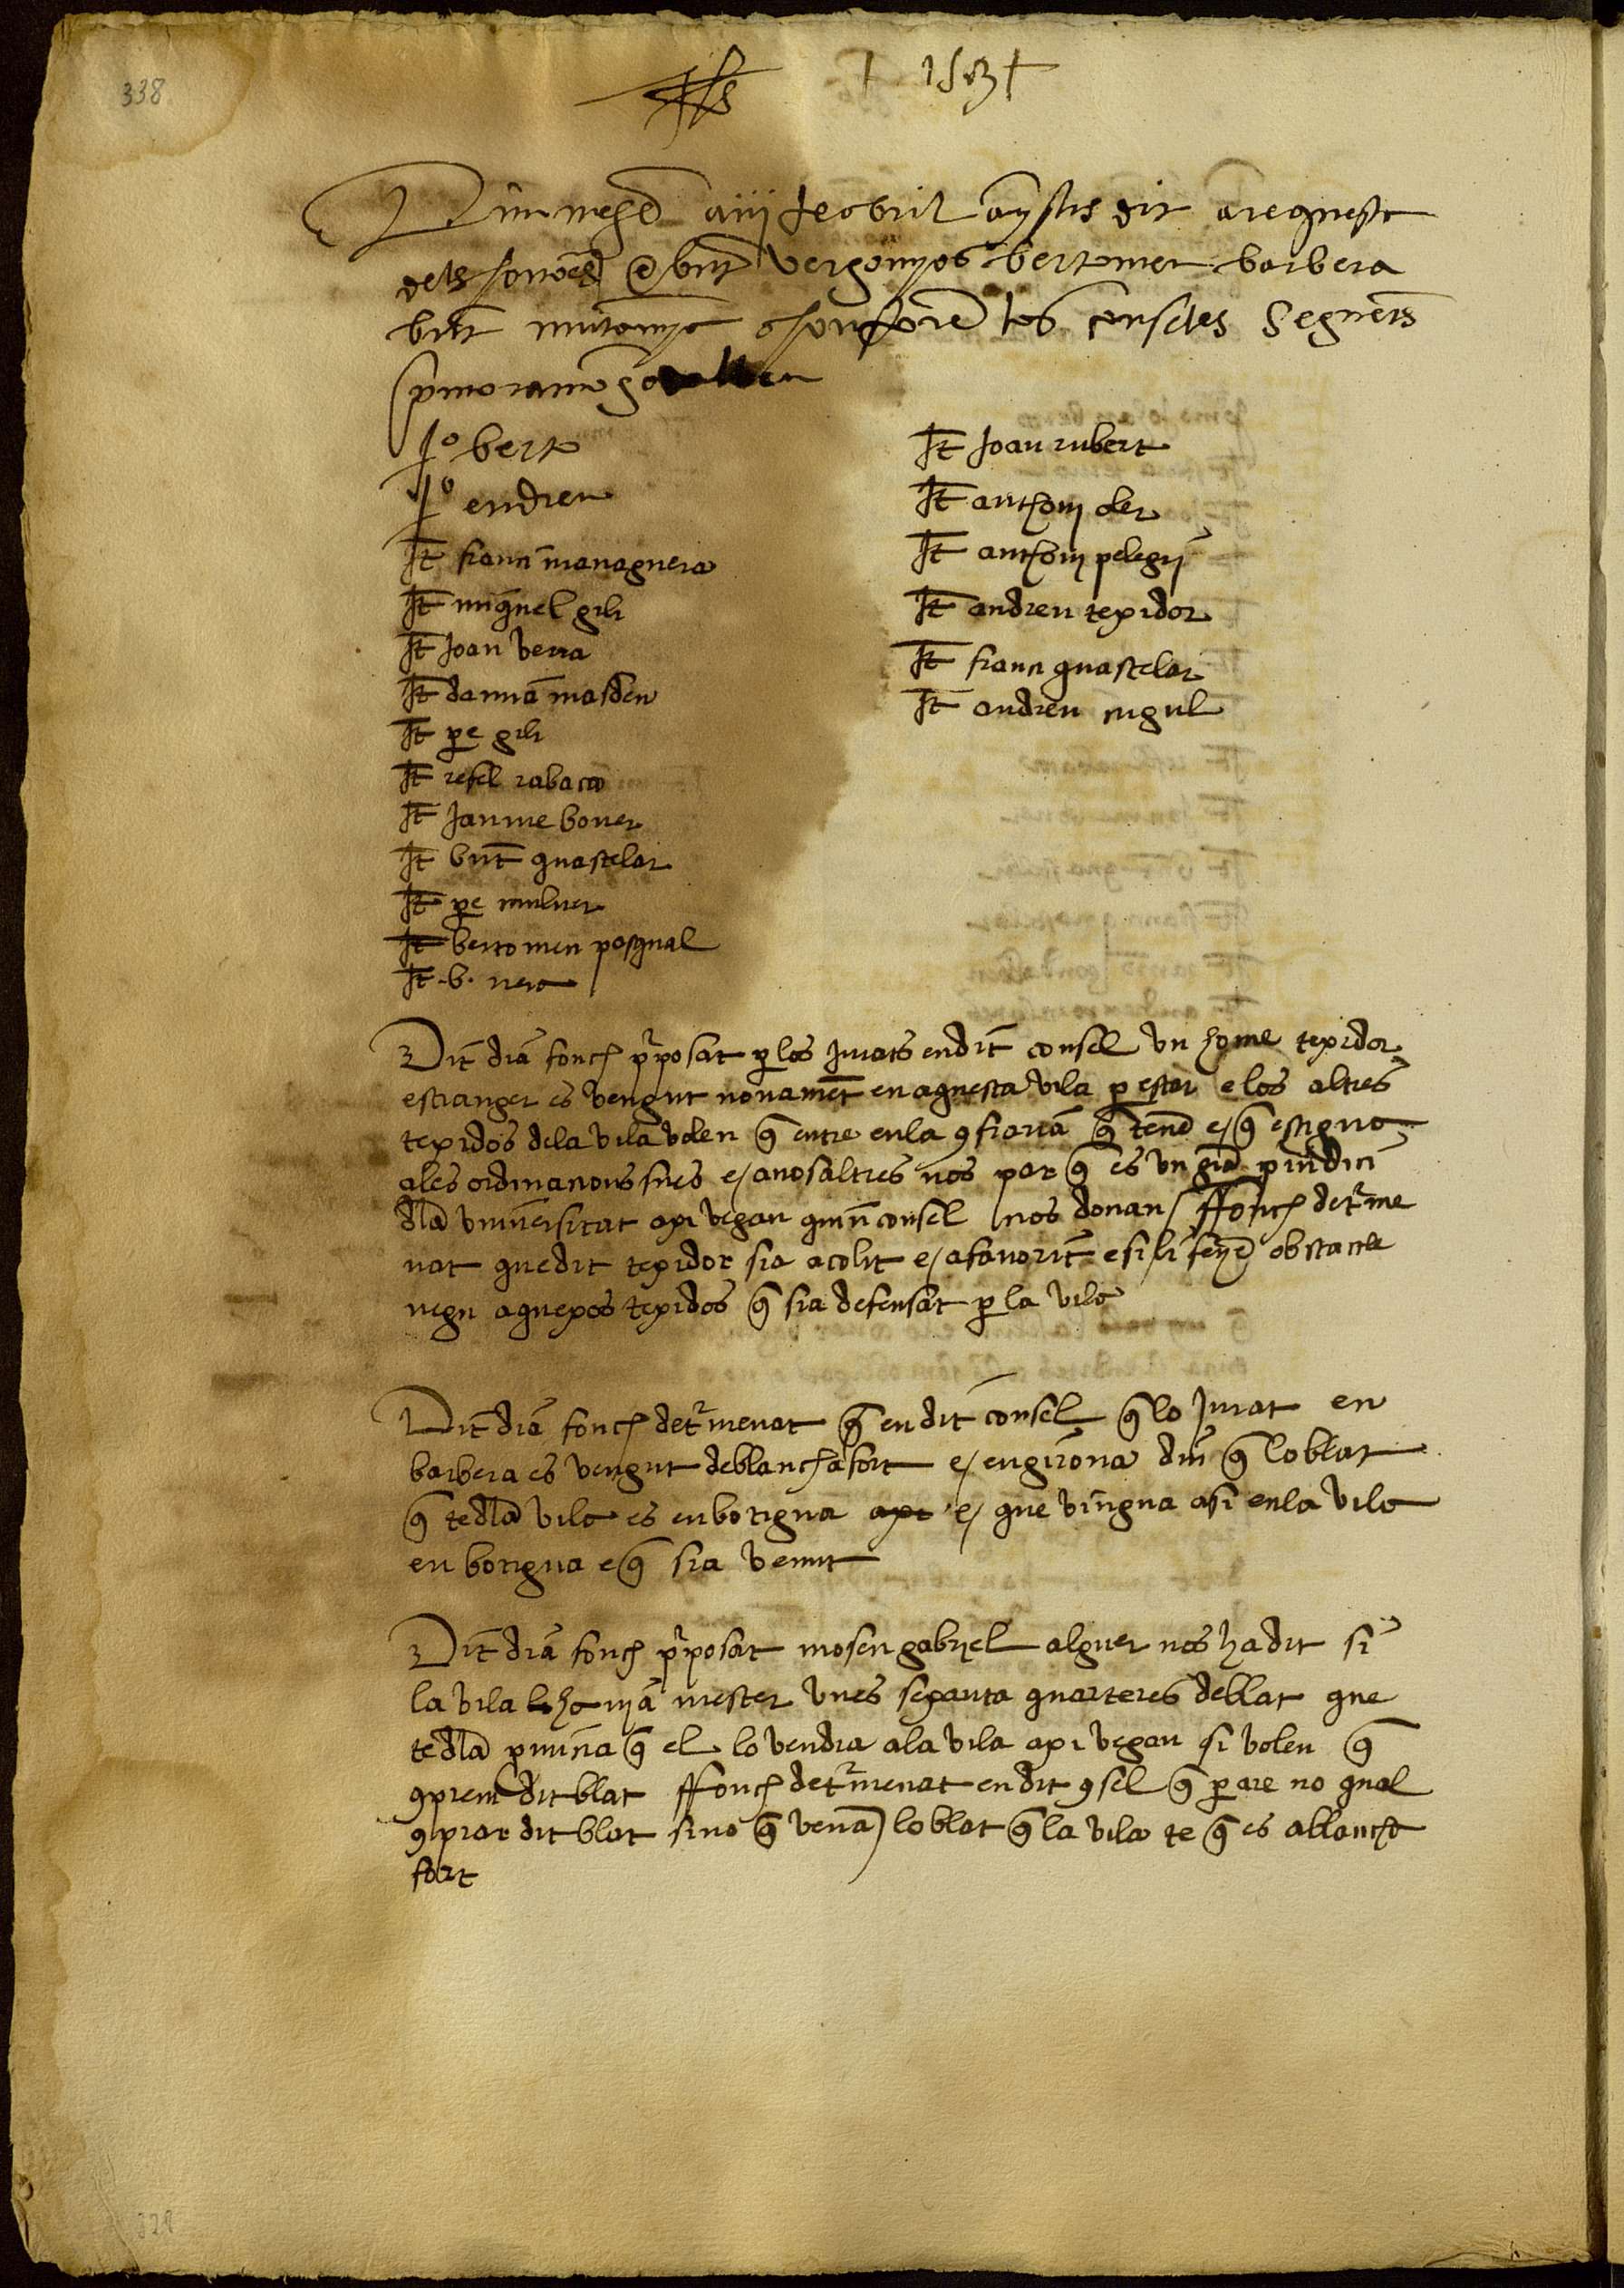 338
Jhs 1513
Dimecres a iii de abril ayschis dit a requesta
dels honors e bnt vergonyos bertomeu barbera
bnt muntanye los conseles seguents
pmo ramo
Jo bert
Jo endreu
It franci managuera
It miquel gili
It Joan verra
It damia masdeu
It pe gili
It rafel rabaca
It Jaume bover
It bnt guastelar
It pe muluer
It bertomeu pasqual
It b. nera
It Joan rubert
It anthoni oler
It anthoni pelegri
It andreu texidor
It franci guastelar
It andreu cugul
Dit dia fonch pposat p los Jurats en dit consel vn home texidor
estranger es vengut novament en aquesta vila p estar e los altres
texidos de la vila volen q entre en la gfraria q tene e q estigua
a les ordinacions sues e a nosaltres nos par q es vn gra prejudici
dla vniversitat axi vegan quin consel nos donan ffonch detrme
nat que dit texidor sia acolit e afavorit e si li feye obstacle
negu aquexos texidos q sia defensat p la vila
Dit dia fonch detrmenat q en dit consel q lo Jurat en
barbera es vengut de blanchafort e en girona diu q lo blat
q te dla vila es en botigua e que vingua asi en la vila
en botigua e q sia venut
Dit dia fonch pposat mosen gabriel alguer nos ha dit si
la vila ha mester vnes sexanta quarteres de blat que
te dla pmina q el lo vendra a la vila axi vegan si volen q
gprem dit blat ffonch detrmenat en dit gsel q p are no qual
gprar dit blat sino q vena lo blat q la vila te q es a blancha
fort